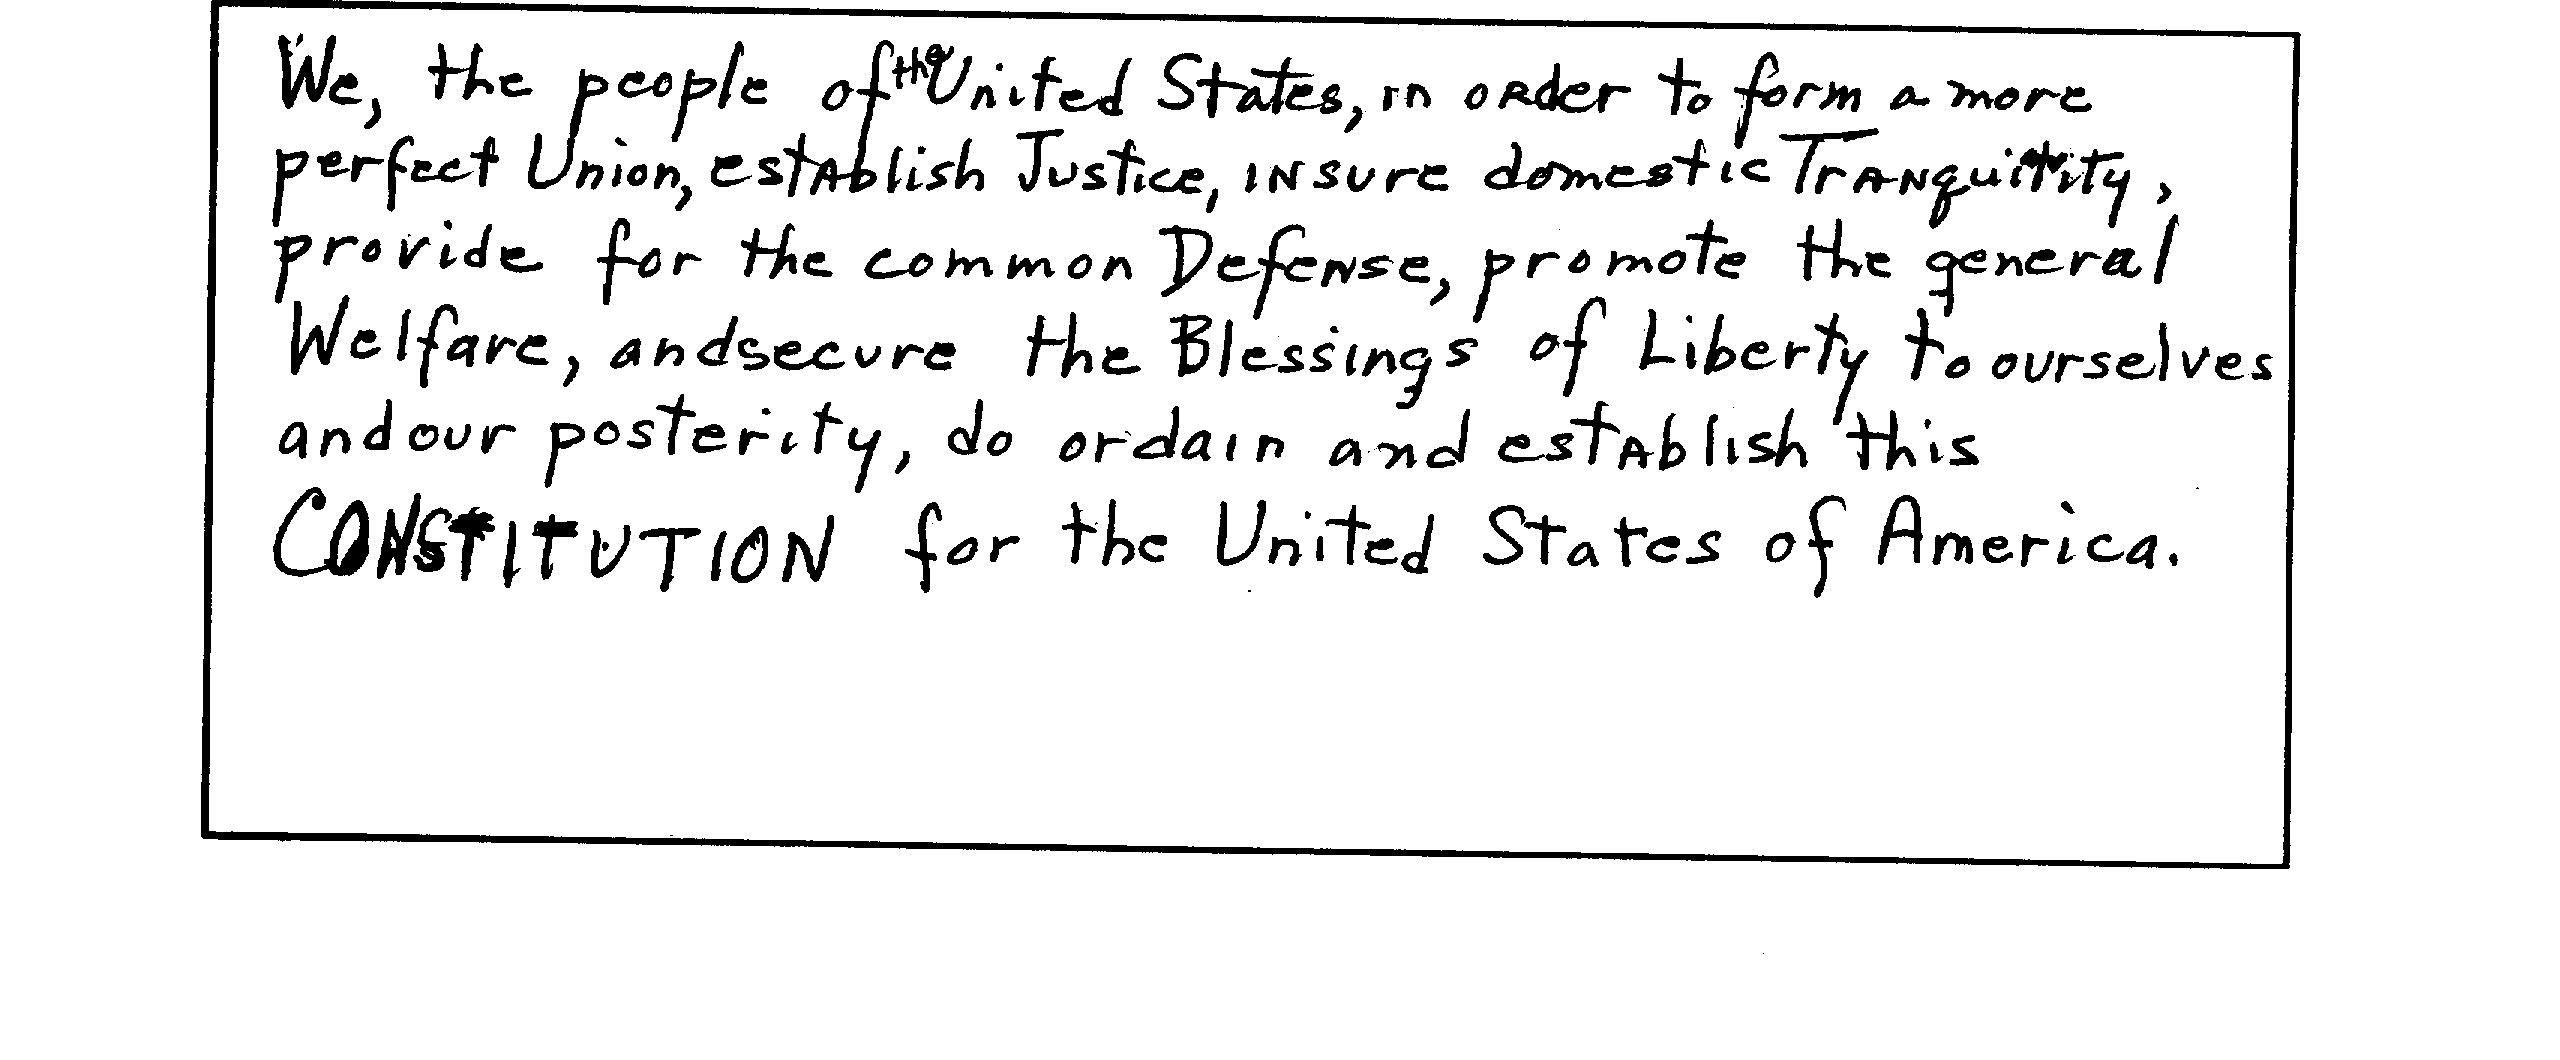 We, the people of the United States, in order to form a more
perfect Union, establish Justice, insure domestic Tranquitity,
provide for the common Defense, promote the general
Welfare, andsecure the Blessings of Liberty to ourselves
andour posterity, do ordain and establish this
CONSTITUTION for the United States of America.